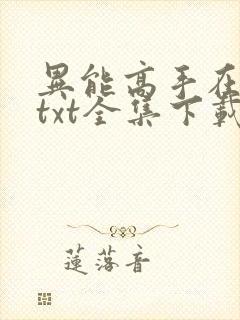 異能高手在
txt全集下載
蓮落音